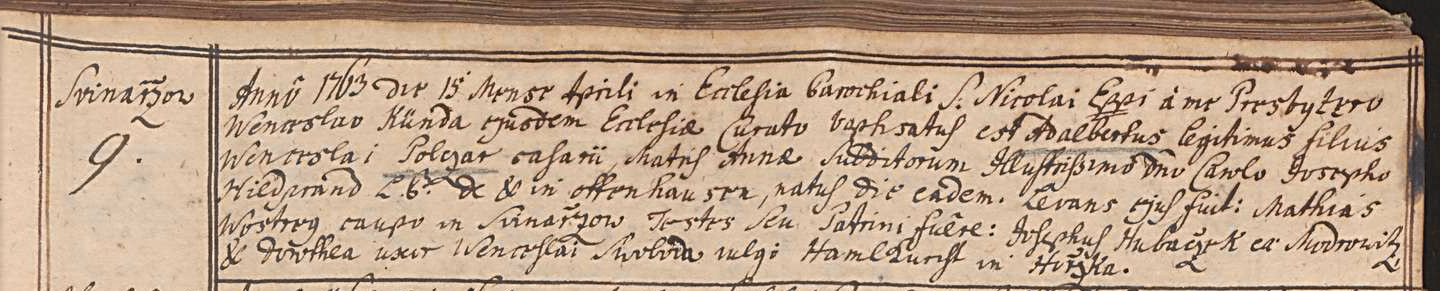 Svinarzow
9.
Annũ 1763 die 15 Mense Aprili in Ecclesia Parochiali S. Nicolai Eppi à me Presbytero
Wenceslao Kũnda ejusdem Ecclesiæ Curato baptisatus est Adalbertus legitimus filius
Wenceslai Polczar casarii, Matris Annæ subditorum Illustrissimo Dno Carolo Josepho
Hildprand L. B. de & in Ottenhausen, natus die eadem. Levans ejus fuit: Mathias
Wostrey caupo in Svinarzow Testes seu Patrini fuere: Josephus Hubaczek ex Modrowitz
& Dorothea uxor Wenceslai Swoboda vulgo in Horzka.